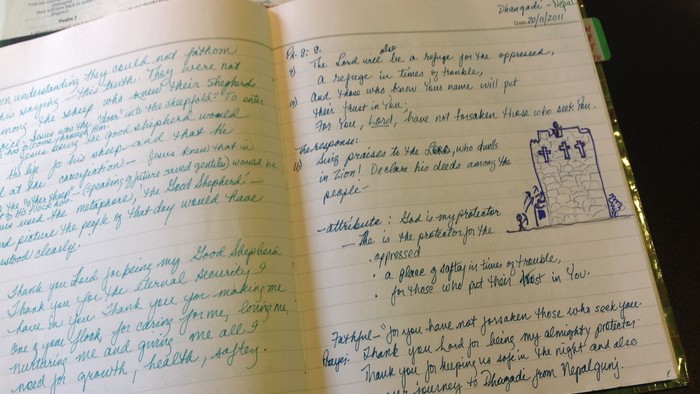 Psalm 1
on understanding they could not fathom
his saying – this truth. They were not
among the sheep who knew their Shepherd
Jesus was the "door" into the sheepfold: To enter
come through Him.
Jesus being the good shepherd would
life for his sheep and that He
at the congregation – Jesus knew that in
"other sheep" – (speaking of future saved gentiles) would be
used the metaphor, 'the Good Shepherd' –
picture the people of that day would have
understood clearly.
Thank you Lord for being my Good Shepherd.
Thank you for the eternal security I
have in You. Thank you for making me
one of your flock, for caring for me, loving me,
nurturing me and giving me all I
need for growth, health, saftey.
Dhangadi – Nepal
Date 20/11/2011
Ps. 9:9.
9) The Lord will also be a refuge for the oppressed,
a refuge in times of trouble,
10) And those who know Your name will put
their trust in You;
For You, Lord, have not forsaken those who seek You.
the response:
11) Sing praises to the Lord, who dwells
in Zion! Declare his deeds among the
people –
– attribute: God is my protector
– He is the protector for the
• oppressed
• a place of saftey in times of trouble,
• for those who put their trust in You.
Faithful – "for you have not forsaken those who seek you.
Prayer: Thank you Lord for being my almighty protector.
Thank you for keeping us safe in the night and also
our journey to Dhagadi from Nepalgunj.